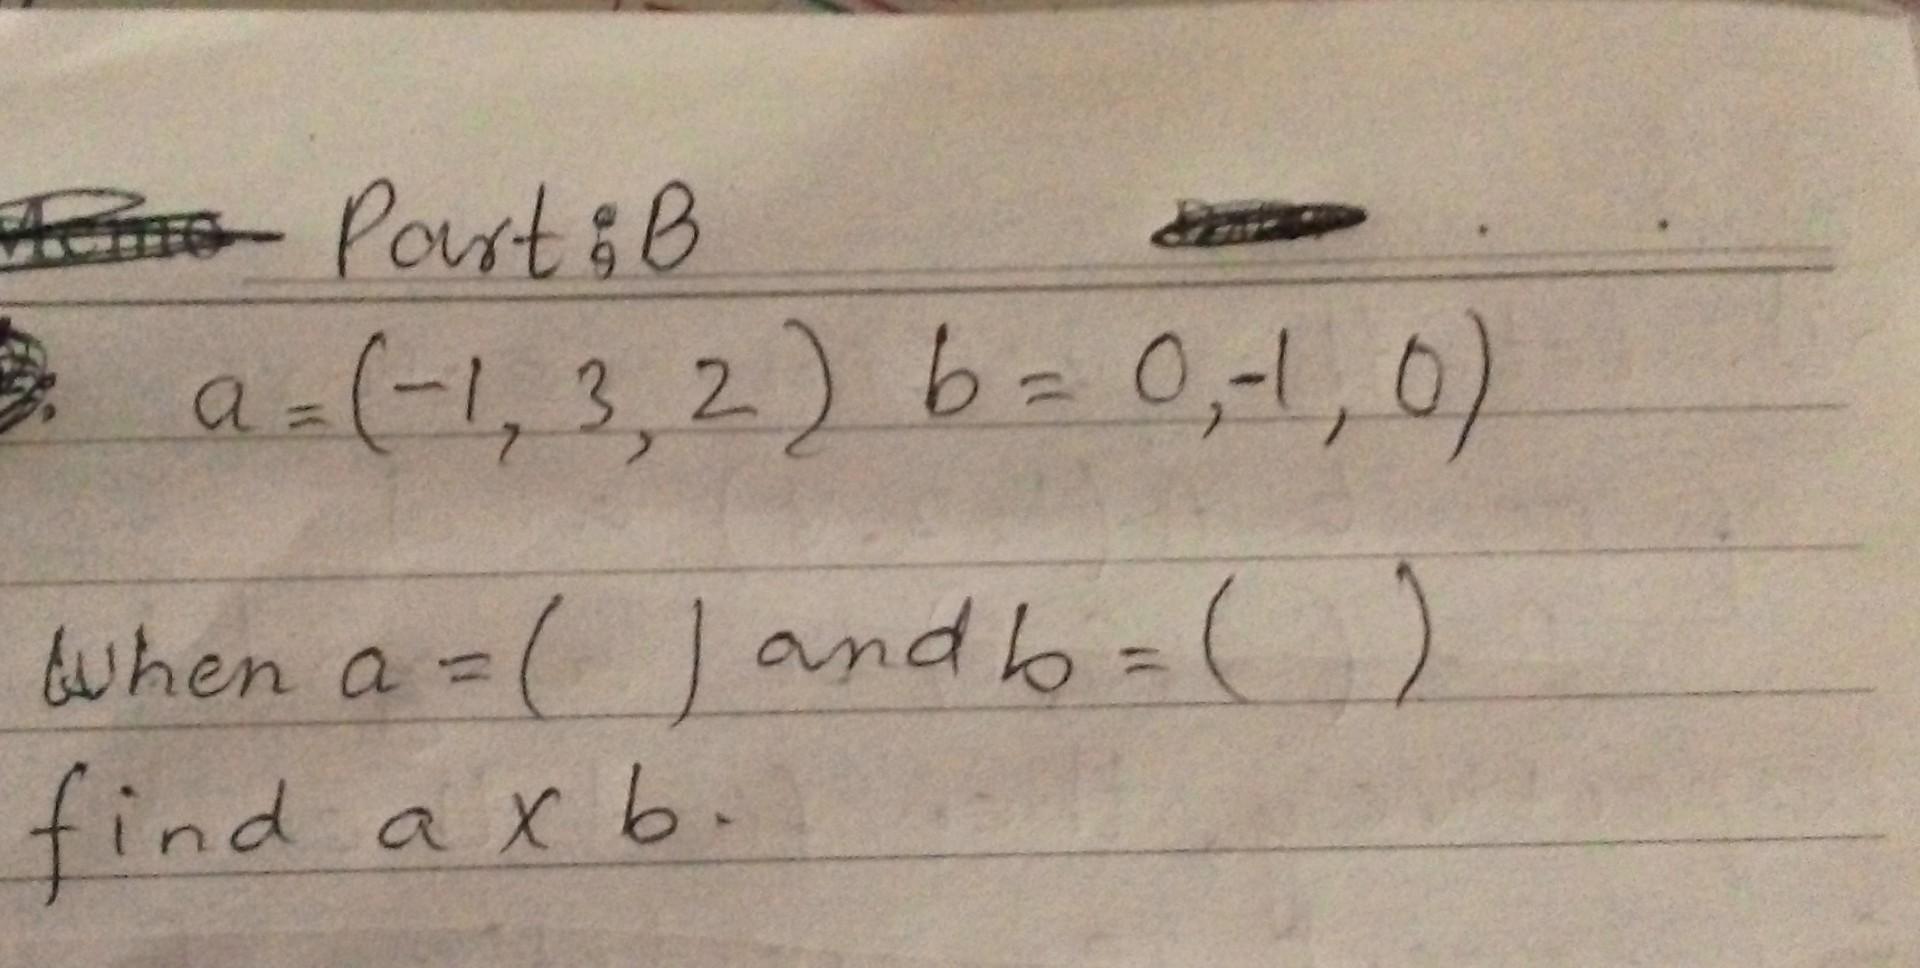 Part: B
a = (-1, 3, 2) b = 0,-1, 0)
When a = ( ) and b = ( )
find a x b.